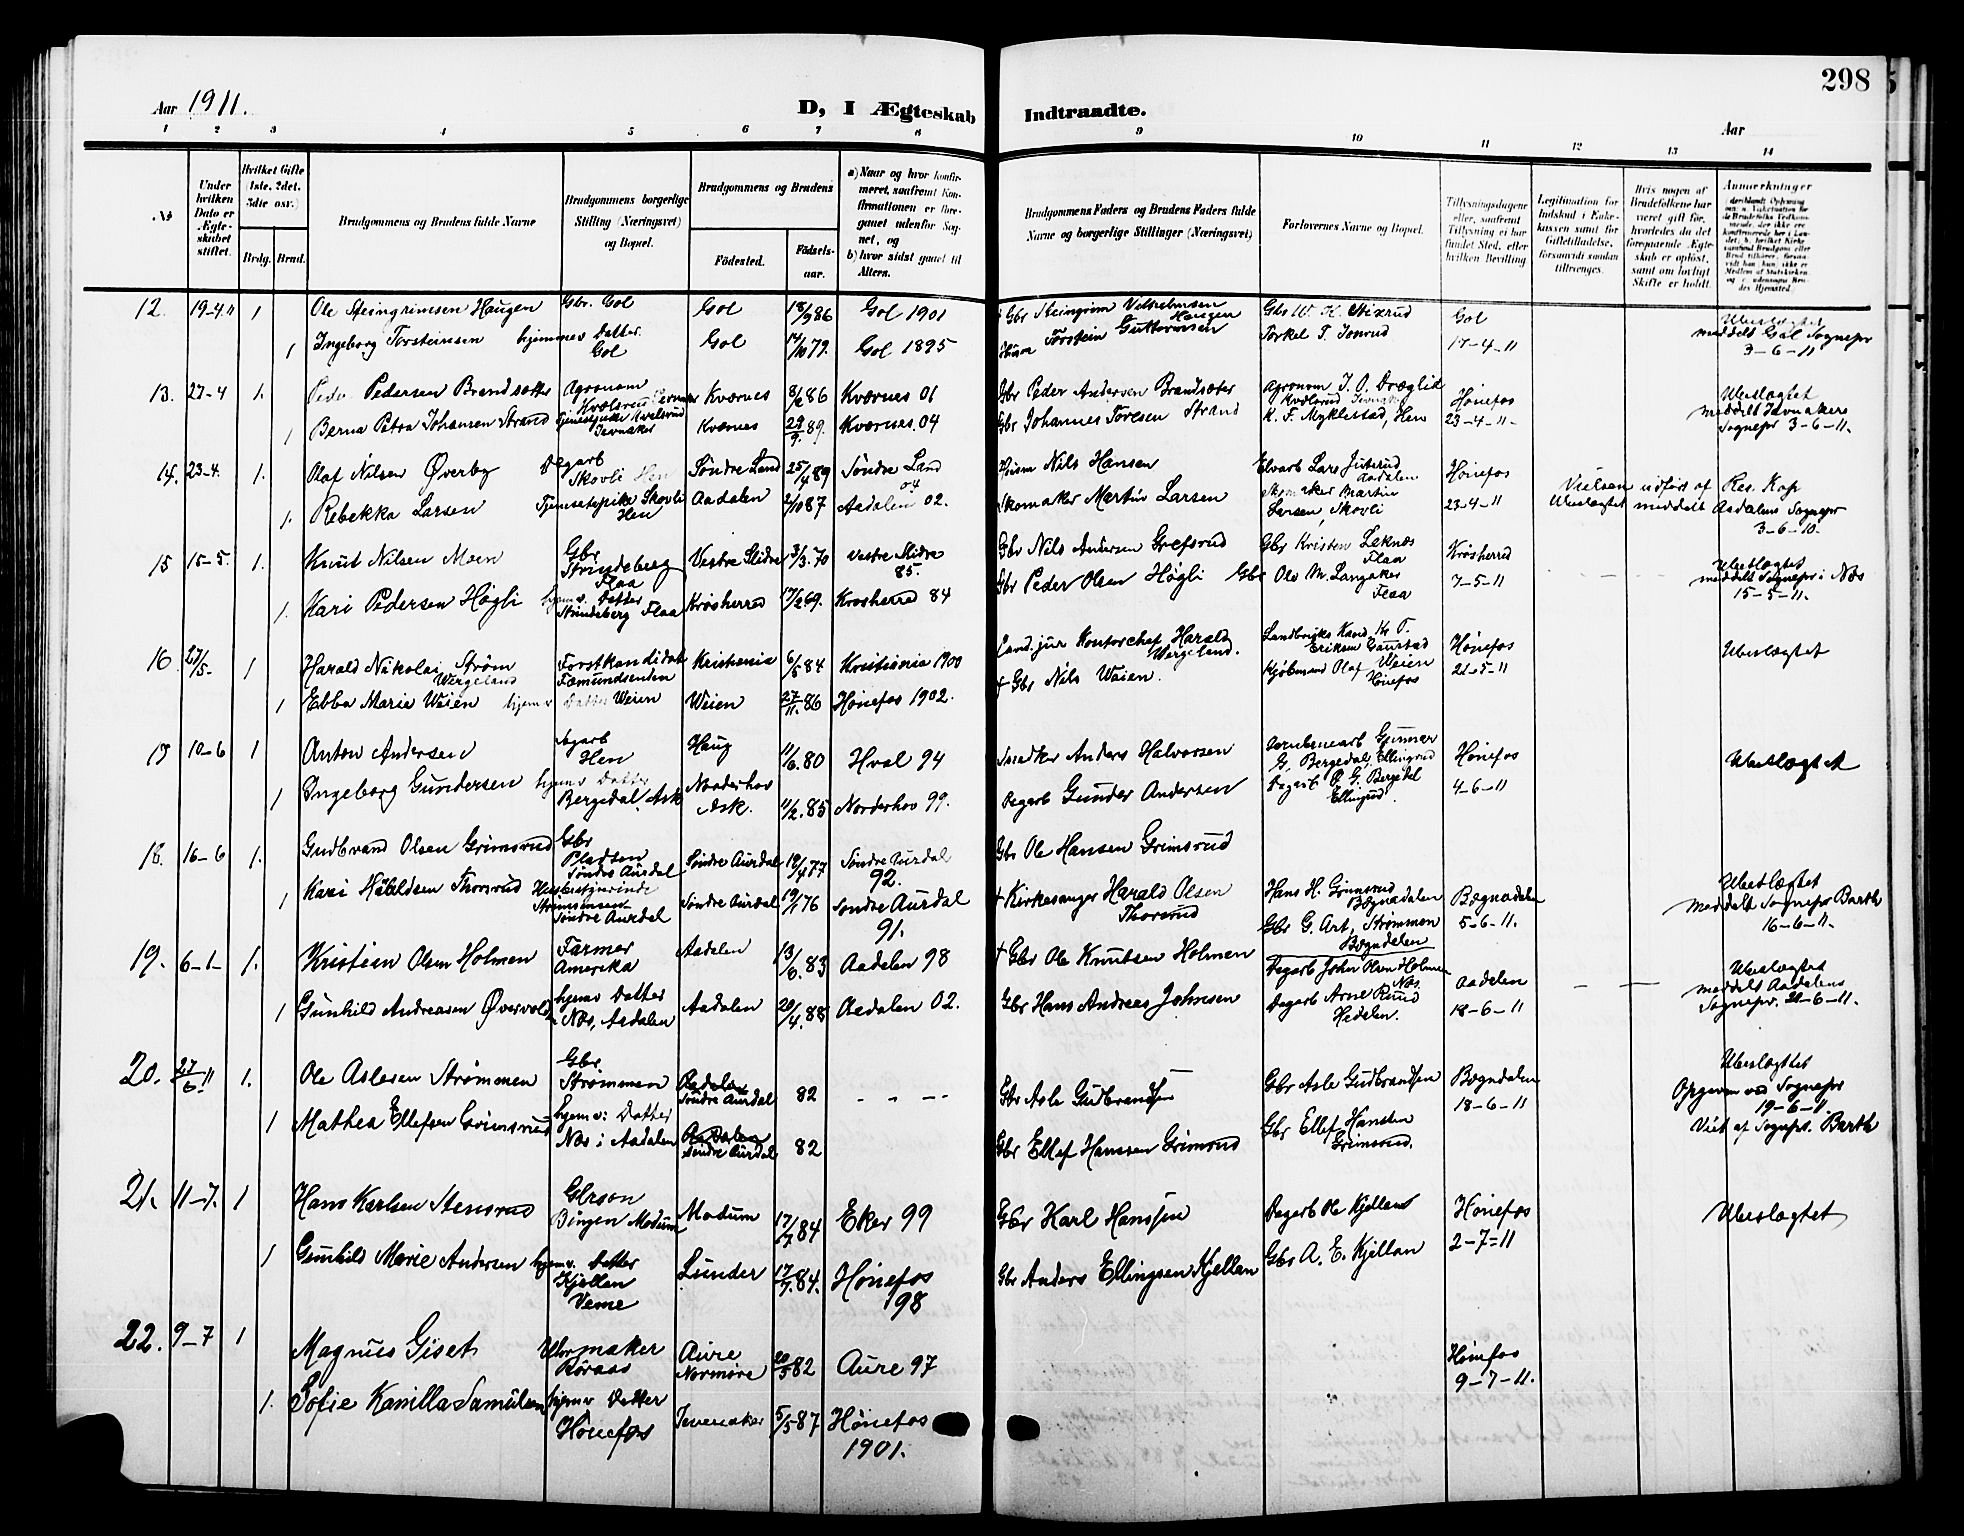 298
Aar 1911.
D, I Ægteskab Indtraadte.
Aar
1 2 3 4 5 6 7 8 9 10 11 12 13 14
No
Under hvilken Dato er Ægteskabet stiftet.
Hvilket Gifte (1ste, 2det, 3die osv.)
Brdg. Brud.
Brudgommens og Brudens fulde Navne
Brudgommens borgerlige Stilling (Næringsvei) og Bopæl.
Brudgommens og Brudens
Fødested.
Fødselsaar.
a) Naar og hvor konfirmeret, saafremt Konfirmationen er foregaaet udenfor Sognet, og
b) hvor sidst gaaet til Alters.
Brudgommens Faders og Brudens Faders fulde Navne og borgerlige Stillinger (Næringsvei)
Forlovernes Navne og Bopæl.
Tillysningsdagene eller, saafremt Tillysning ei har fundet Sted, efter hvilken Bevilling
Legitimation for Indskud i Enkekassen samt for Giftetilladelse, forsaavidt saadan tiltrænges.
Hvis nogen af Brudefolkene har været gift før, hvorledes da det foregaaende Ægteskab er opløst, samt om lovligt Skifte er holdt.
Anmærkninger
12. 19-4 11 1 Ole Steingrimsen Haugen Gbr. Gol Gol 18/9 86 Gol 1901 Gbr Steingrim Vilhelmsen Haugen Gol
1 Ingeborg Torsteinsen hjemmev Datter Gol Gol 79. Gol 1895 Torstein Guttormsen Torkel T. 17-4-11 Ubeslægtet meddelt Gol Sognepr 3-6-11
13. 27-4 1. Peder Pedersen Brandsætter Agronom Kværnes 86 Kværnes 01 Gbr Peder Andersen Brandsæter Agronom J. O. Hønefos
1 Berna Petra Johansen Strand Jevnaker Kværnes 29/9 89. Kværnes 04 Gbr Johannes Toresen Strand K. F. Myklestad, Hen 23-4-11- Ubeslægtet meddelt Jevnakers Sognepr 3-6-11.
14. 23-4. 1. Olaf Nilsen Øverby Dagarb Skovli Hen Søndre Land 25/4 89 Søndre Land 04 Nils Hansen Aadalen Hønefos
1. Rebekka Larsen Tjenestepike Skovli Hen Aadalen 87 Aadalen 02. Skomaker Martin Larsen Skomaker Martin Larsen, Skovli 23-4-11 Vielsen udført af Res. Kap Ubeslægtet meddelt Aadalens Sognepr 3-6-10.
15 15-5. 1. Knut Nilsen Moen Gbr Strindeberg Flaa Vestre Slidre 3/3. 70 Vestre Slidre 85. Gbr Nils Andersen Grefsrud Gbr Kristen Leknes Flaa Krøsherred
1. Kari Pedersen Høgli hjemv. Datter Strindeberg Flaa Krøsherred 17/2 69. Krøsherred 84 Gbr Peder Olsen Høgli Gbr Ole M. Langaker Flaa 7-5-11 Ubeslægtet meddelt Sognepr i Næs 15-5-11.
16 27/5. 1 Harald Nikolai Strøm Wergeland Forstkandidat Fæmundsenden Kristiania 6/8 84 Kristiania 1900 Cand. jur Kontorchef Harald Wergeland. Eriksen Hønefos
1 Ebba Marie Weien hjemv Datter Weien Weien 27/11. 86 Hønefos 1902. + Gbr Nils Weien. Kjøbmand Olaf Weien Hønefos 21-5-11 Ubeslægtet
17 10-6 1 Anton Andersen Dagarb Hen Haug 11/6. 80 Hval 94 Snedker Anders Halvorsen Gunnar G. Bergedal, Ellingrud Hønefos
1 Ingeborg Gundersen hjemv Datter Bergedal Ask Norderhov Ask. 11/2. 85 Norderhov 99. Dagarb Gunder Andersen Dagarb G. Bergedal Ellingrud. 4-6-11 Ubeslægtet
18. 16-6 1. Gudbrand Olsen Grimsrud Gbr Pladsen Søndre Aurdal Søndre Aurdal 77 Søndre Aurdal 92. Gbr Ole Hansen Grimsrud
1 Kari Haraldsen Thorsrud Husbestyrerinde Søndre Aurdal Søndre Aurdal 76 Søndre Aurdal 91. + Kirkesanger Harald Olsen Thorsrud Hans H. Grimsrud Bægnadalen Gbr G. Art, Strømmen Bægndalen Bægnadalen 5-6-11. Ubeslægtet meddelt Sognepr Barth 16-6-11.
19. 6-1- 1. Kristian Olsen Holmen Farmer Amerika Aadalen 13/6. 83 Aadalen 98 + Gbr Ole Knutsen Holmen Dagarb John Olsen Holmen Næs Aadalen
1 Gunhild Andreasen Øvervold hjemv Datter Næs, Aadalen Aadalen 20/4. 88 Aadalen 02. Gbr Hans Andreas Johnsen Dagarb Arne Ruud Hedalen. 18-6-11 Ubeslægtet meddelt Aadalens Sognepr. 21-6-11.
20. 27/6 11 1. Ole Aslesen Strømmen Gbr Strømmen Aadalen Søndre Aurdal 82 - - - Gbr Asle Gudbrandsen Gbr Asle Gudbrandsen Bægndalen
1 Mathea Ellefsen Grimsrud hjemv: Datter Næs i Aadalen Aadalen Søndre Aurdal 82 Gbr Ellef Hanssen Grimsrud Gbr Ellef Hansten Grimsrud. 18-6-11 Ubeslægtet Opgaven ved Sognepr 19-6-11 Viet af Sognepr. Barth
21. 11-7. 1 Hans Karlsen Stensrud Gbrsøn Bingen Modum Modum 17/7 84 Eker 99 Gbr Karl Hanssen Dagarb Ole Kjellan Hønefos
1 Gunhild Marie Andersen hjemv. Datter Kjellan Veme Lunder 17/7. 84. Hønefos 98 Gbr Anders Ellingsen Kjellan Gbr A. E. Kjellan 2-7-11 Ubeslægtet
22. 9-7 1 Magnus Giset Uhrmaker Røraas Aure Normøre 20/5 82 Aure 97
1. Sofie Kamilla Samuelsen hjemv Datter Hønefos Jevnaker 5/5 87 Hønefos 1901. Hønefos 9-7-11.